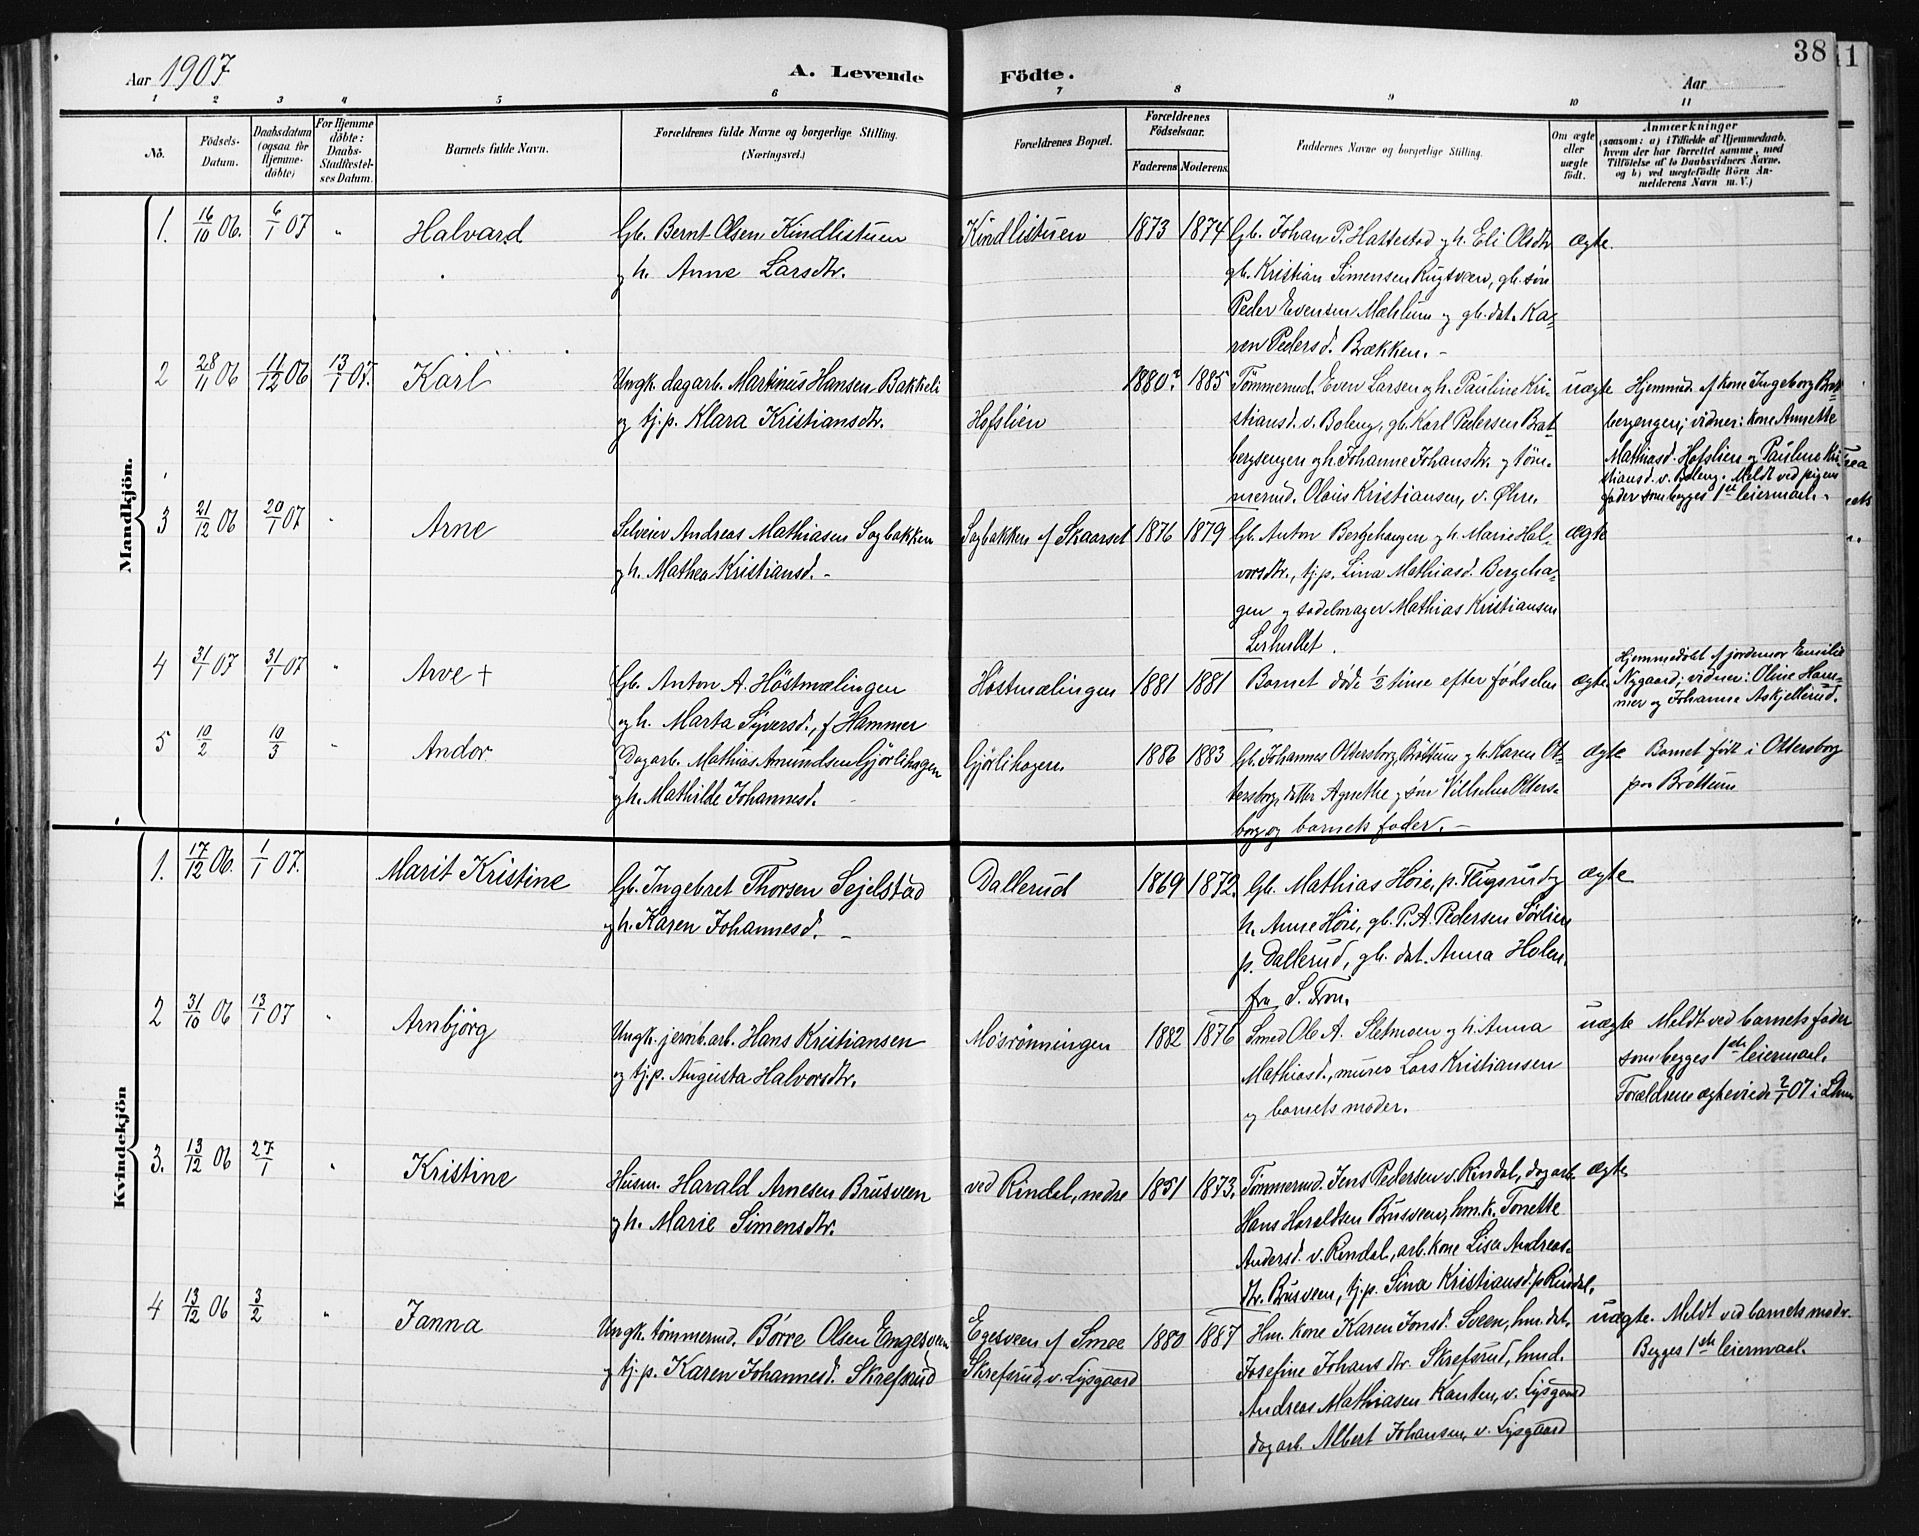 38
11
Aar 1907
A. Levende Födte.
Aar
1 2 3 4 5 6 7 8 9 10 11
No.
Födsels-
Datum.
Daabsdatum
(ogsaa for
Hjemme-
döbte)
For Hjemme
döbte:
Daabs-
Stadfæstel-
ses Datum.
Barnets fulde Navn.
Forældrenes fulde Navne og borgerlige Stilling.
(Næringsvei.)
Forældrenes Bopæl.
Forældrenes
Födselsaar.
Faderens Moderens.
Faddernes Navne og borgerlige Stilling.
Om ægte
eller
uægte
födt.
Anmærkninger
(saasom: a) i Tilfælde af Hjemmedaab,
hvem der har forrettet samme, med
Tilföielse af to Daabsvidners Navne,
og b) ved uegtefödte Börn An-
melderens Navn m. V.)
Mandkjön.
1. 16/10 06. 6/1 07 " Halvard
Gb. Bernt Olsen Kindlistuen
og h. Anne Larsdtr.
Kindlistuen 1873 1874
Gb. Johan P. Hattestad og h. Eli Olsdtr
gb. Kristian Simensen Rugsveen, gb. søn
Peder Evensen Mæhlum og gb. dat. Ka-
ren Pedersd. Brækken. -
ægte.
2 28/11 06 11/12 06 13/1 07. Karl
Ungk. dagarb. Martinus Hansen Bakkeli
og tj.p. Klara Kristiansdtr.
Hofslien 1880? 1885
Tømmermd. Even Larsen og h. Pauline Kri-
stiansd. v. Boleng, gb. Karl Pedersen Brat-
bergsengen og h. Johanne Johansdtr. og tøm-
mermd. Olaus Kristiansen, v. Øhrn.
uægte
Hjemmed. af kone Ingeborg Brat-
bergengen; vidner: kone Annette
Mathiasd. Hofslien og Pauline Kri-
stiansd. v. Boleng. Meldt ved pigens
fader som begges 1ste leiermaal.
3 21/12 06 20/1 07 " Arne
Selveier Andreas Mathiasen Sagbakken
og h. Mathea Kristiansd. -
Sagbakken af Skaarset 1876 1879
Gb. Anton Bergehagen og h. Marie Hal-
vorsdtr., tj.p. Lina Mathiasd. Bergeha-
gen og sadelmager Mathias Kristiansen
Lerhullet.
ægte
4 31/1 07 31/1 07 " Arve +
Gb. Anton A. Höstmælingen
og h. Marta Syversd., f. Hammer
Höstmælingen 1881 1881
Barnet døde ½ time efter fødselen
ægte.
Hjemmedøbt af jordmor Emilie
Nygaard; vidner: Oline Ham-
mer og Johanne Askjellerud.
5 10/2 10/3 " Andor
Dagarb. Mathias Amundsen Gjörlihagen
og h. Mathilde Johannesd. -
Gjörlihagen 1886 1883
Gb. Johannes Ottersborg, Brøttum og h. Karen Ot-
tersborg, datter Agnethe og søn Vilhelm Otters-
borg og barnets fader. -
ægte
Barnet født i Ottersborg
paa Brøttum
Kvindekjön
1. 17/12 06. 1/1 07. Marit Kristine
Gb. Ingebret Thorsen Sejelstad
og h. Karen Johannesd. -
Dallerud 1869 1872.
Gb. Mathias Høie, p. Flugsrud og
h. Anne Høie, gb. P. A. Pedersen Sørlien
p. Dallerud, gb. dat. Anna Holen
fra S. Fron.
ægte
2 31/10 06 13/1 07 " Arnbjörg
Ungk. jernb.arb. Hans Kristiansen
og tj.p. Augusta Halvorsdtr.
Mösrönningen 1882 1876
Smed Ole A. Sletmoen og h. Anna
Mathiasd., murer Lars Kristiansen
og barnets moder.
uægte
Meldt ved barnets fader
som begges 1ste leiermaal.
Forældrene ægteviede 2/1 07 i Lhmr
3. 13/12 06 27/1 " Kristine
Husm. Harald Arnesen Brusveen
og h. Marie Simensdtr.
ved Rindal, nedre 1851 1873.
Tømmermd. Jens Pedersen v. Rindal, dagarb.
Hans Haraldsen Brusveen, hm.k. Tonette
Andersd. v. Rindal, arb. kone Lisa Andreas-
dtr. Brusveen, tj.p. Sina Kristiansd. p. Rindal.
ægte
4 13/12 06 3/2 " Janna
Ungk. tömmermd. Börre Olsen Engesveen
og tj.p. Karen Johannesd. Skrefsrud
Egesveen af Smee
Skrefsrud, v. Lysgaard 1880 1887
Hm. kone Karen Jonsd. Sveen, hm. dat.
Josefine Johansdtr. Skrefsrud, hmd.
Andreas Mathiasen Kanten, v. Lysgaard
dagarb. Albert Johansen, v. Lysgaard
uægte.
Meldt ved barnets moder.
Begges 1ste leiermaal.